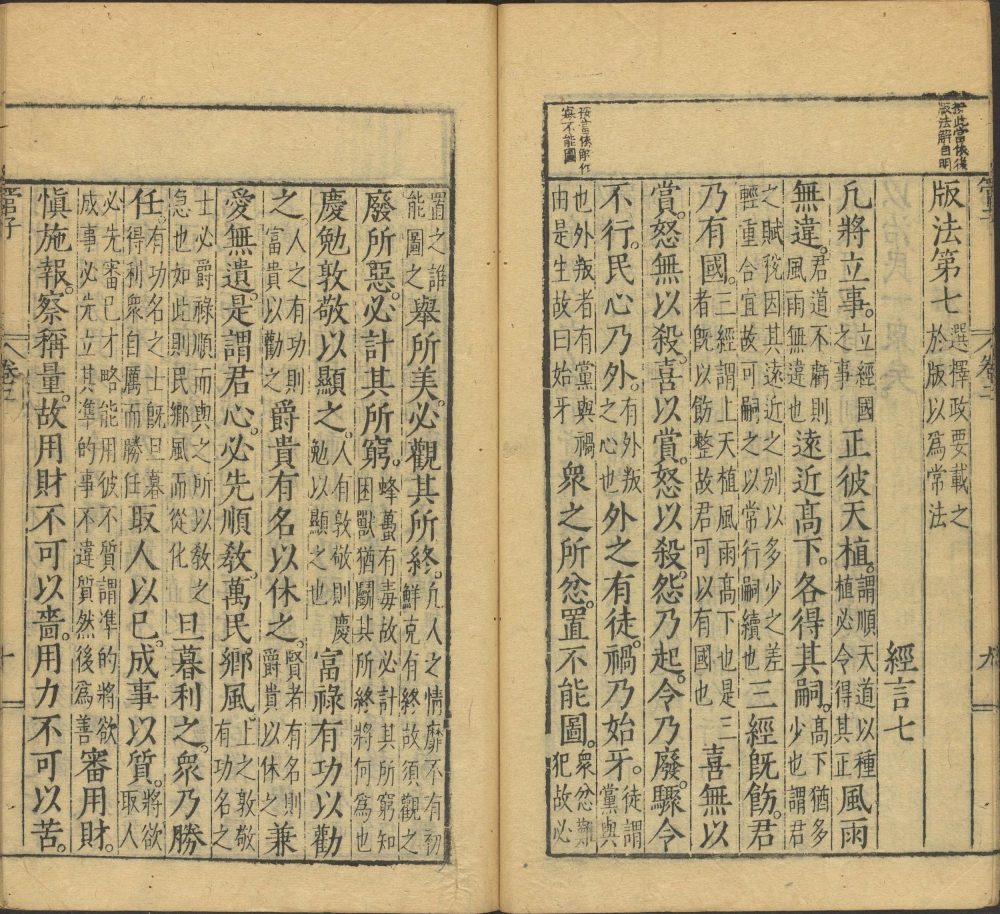 按此當依後
版法解自明
按當依解作
寡不能圖
版法第七選擇政要載之
於版以爲常法
經言七
凡將立事立經國
之事正彼天植謂順天道以種
植必令得其正風雨
無違君道不虧則
風雨無違也遠近高下各得其嗣高下猶多
少也謂君
之賦稅因其遠近之別以多少之差
輕重合宜故可嗣之以常行嗣續也三經既飭君
乃有國三經謂上天植風雨高下也是三
者既以飭整故君可以有國也喜無以
賞怒無以殺喜以賞怒以殺怨乃起令乃廢驟令
不行民心乃外有外叛
之心也外之有徒禍乃始牙徒謂
黨與
也外叛者有黨與禍
由是生故曰始牙衆之所忿置不能圖衆忿難
犯故必
置之誰
能圖之舉所美必觀其所終凡人之情靡不有初
鮮克有終故須觀之
廢所惡必計其所窮蜂蠆有毒故必計其所窮知
困獸猶鬭其所終將何爲也
慶勉敦敬以顯之人有敦敬則慶
勉以顯之也富祿有功以勸
之人之有功則
富貴以勸之爵貴有名以休之賢者有名則
爵貴以休之兼
愛無遺是謂君心必先順教萬民鄉風上之敦敬
有功名之
士必爵祿順而與之所以教之
急也如此則民鄉風而從化旦暮利之衆乃勝
任有功名之士既旦暮
得利衆自厲而勝任取人以已成事以質將欲
取人
必先審已才略能用彼不質謂準的將欲
成事必先立其準的事不違質然後爲善審用財
愼施報察稱量故用財不可以嗇用力不可以苦
管子
卷二
九
管子
卷二
十